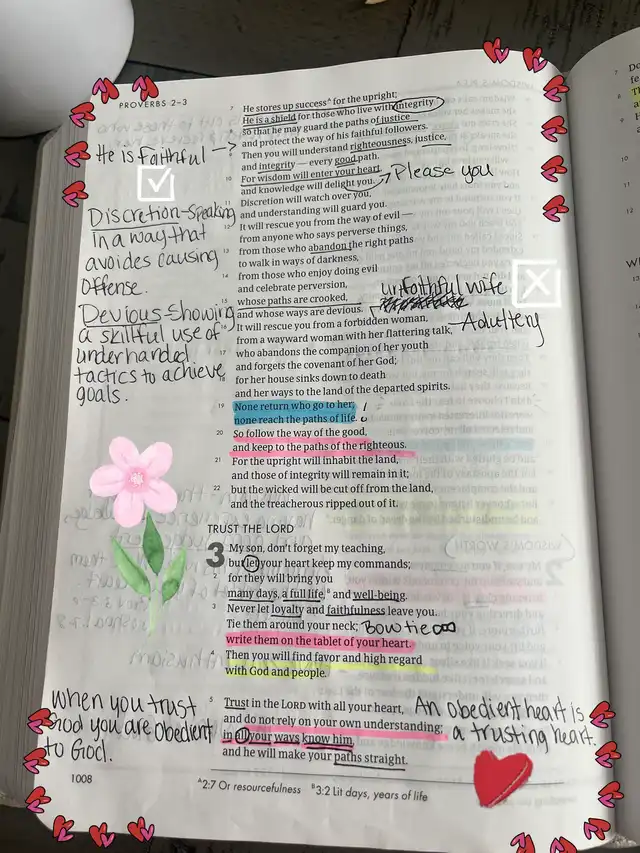 PROVERBS 2–3
7 He stores up success^A for the upright;
He is a shield for those who live with integrity
8 so that he may guard the paths of justice
and protect the way of his faithful followers.
9 Then you will understand righteousness, justice,
and integrity — every good path.
10 For wisdom will enter your heart,
and knowledge will delight you.
11 Discretion will watch over you,
and understanding will guard you.
12 It will rescue you from the way of evil —
from anyone who says perverse things,
13 from those who abandon the right paths
to walk in ways of darkness,
14 from those who enjoy doing evil
and celebrate perversion,
15 whose paths are crooked,
and whose ways are devious.
16 It will rescue you from a forbidden woman,
from a wayward woman with her flattering talk,
17 who abandons the companion of her youth
and forgets the covenant of her God;
18 for her house sinks down to death
and her ways to the land of the departed spirits.
19 None return who go to her;
none reach the paths of life.
20 So follow the way of the good,
and keep to the paths of the righteous.
21 For the upright will inhabit the land,
and those of integrity will remain in it;
22 but the wicked will be cut off from the land,
and the treacherous ripped out of it.
He is Faithful →
Please you
Discretion-Speaking
in a way that
avoides causing
offense.
Devious-Showing
a skillful use of
underhanded
tactics to achieve
goals.
unfaithful wife
Adultery
!
TRUST THE LORD
3 My son, don't forget my teaching,
but let your heart keep my commands;
2 for they will bring you
many days, a full life,^B and well-being.
3 Never let loyalty and faithfulness leave you.
Tie them around your neck; Bow tie
write them on the tablet of your heart.
4 Then you will find favor and high regard
with God and people.
5 Trust in the LORD with all your heart,
and do not rely on your own understanding;
6 in all your ways know him,
and he will make your paths straight.
When you trust
God you are obedient
to God.
An obedient heart is
a trusting heart.
1008
^A 2:7 Or resourcefulness ^B 3:2 Lit days, years of life